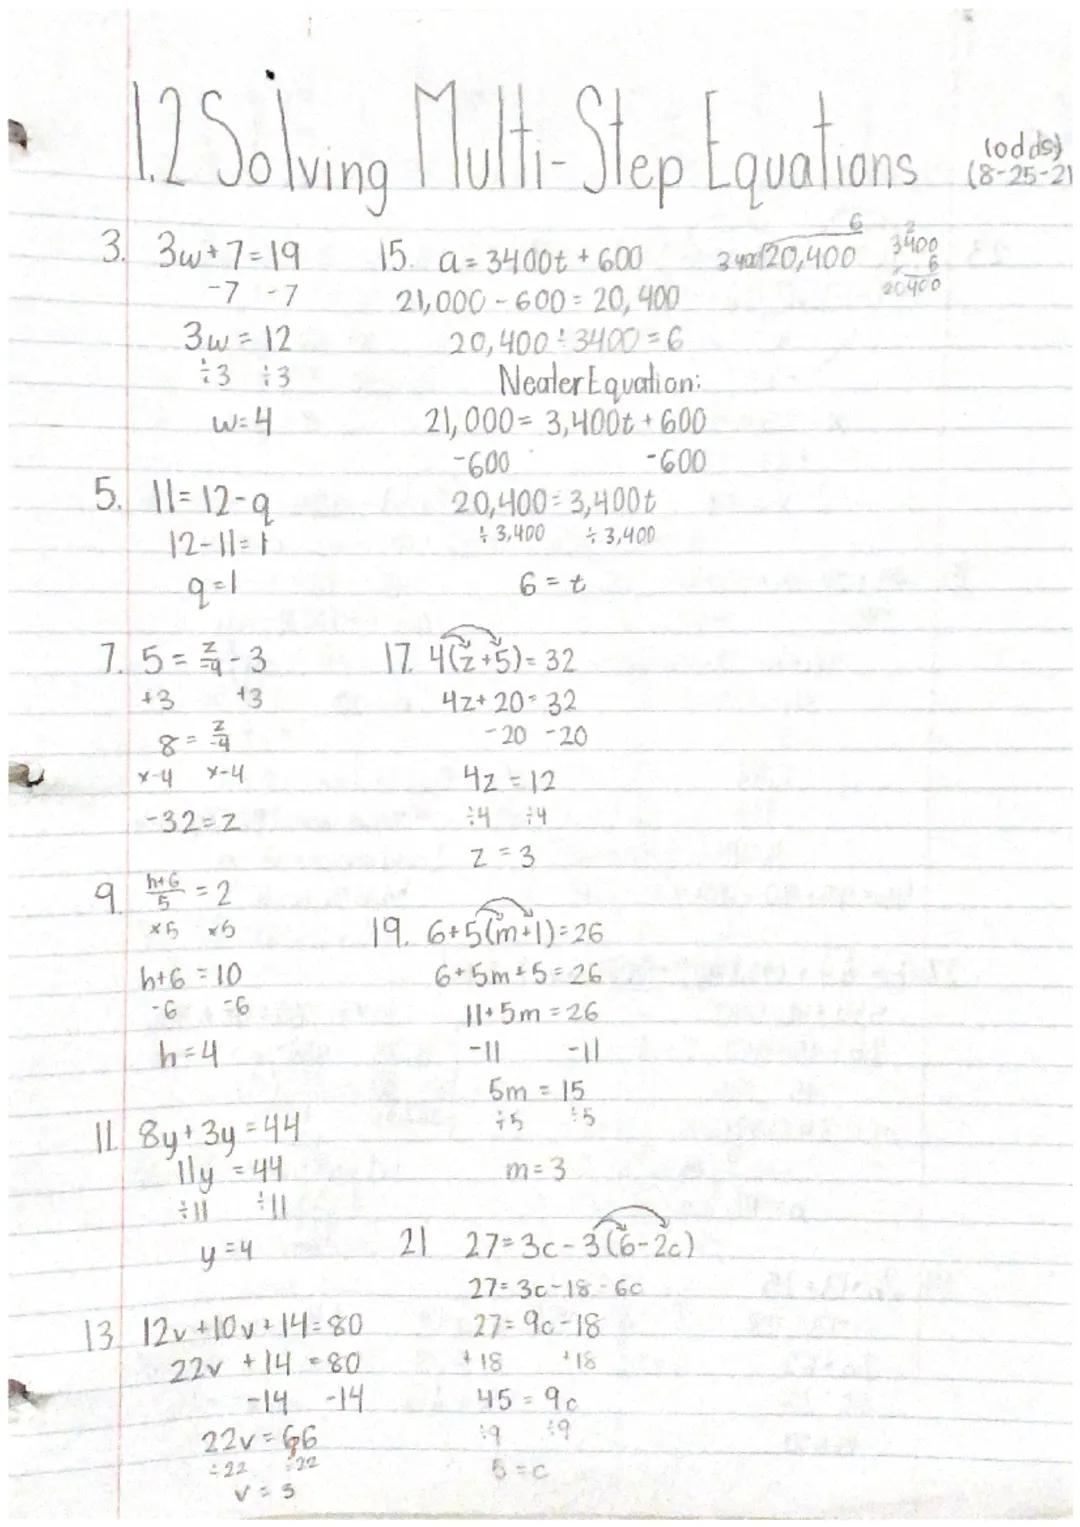 1.2 Solving Multi-Step Equations (odds)
(8-25-21
3. 3w+7=19
-7 -7
3w=12
÷3 ÷3
w=4
5. 11=12-q
12-11=1
q=1
7. 5=z/-4-3
+3 +3
8=z/-4
×-4 ×-4
-32=z
9. h+6/5=2
×5 ×5
h+6=10
-6 -6
h=4
11. 8y+3y=44
11y=44
÷11 ÷11
y=4
13. 12v+10v+14=80
22v+14=80
-14 -14
22v=66
÷22 ÷22
v=3
15. a=3400t+600
21,000-600=20,400
20,400÷3400=6
Neater Equation:
21,000=3,400t+600
-600 -600
20,400=3,400t
÷3,400 ÷3,400
6=t
6
3400)20,400
2
3400
×6
20400
17. 4(z+5)=32
4z+20=32
-20 -20
4z=12
÷4 ÷4
z=3
19. 6+5(m+1)=26
6+5m+5=26
11+5m=26
-11 -11
5m=15
÷5 ÷5
m=3
21 27=3c-3(6-2c)
27=3c-18-6c
27=9c-18
+18 +18
45=9c
÷9 ÷9
5=c